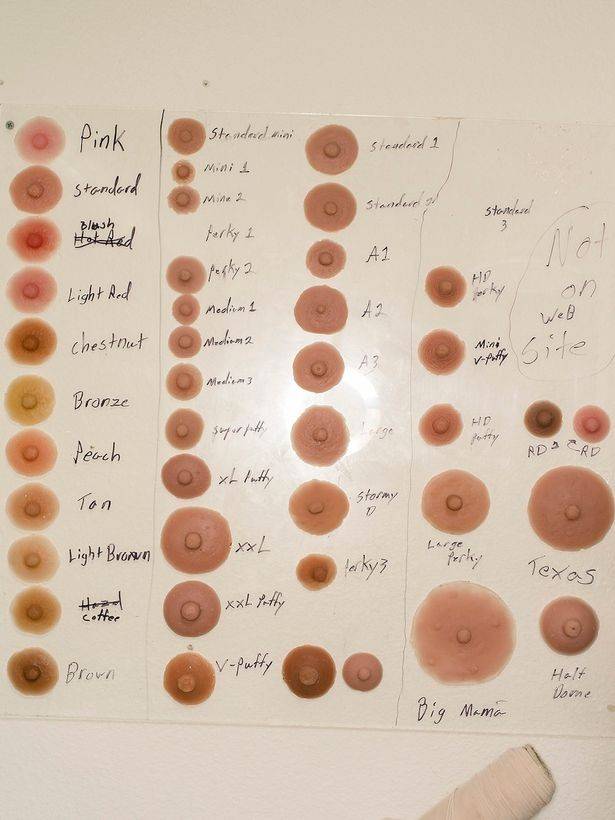 Pink
Standard
Blush
Hot Red
Light Red
Chestnut
Bronze
Peach
Tan
Light Brown
Hazel
Coffee
Brown
Standard mini
Mini 1
Mini 2
Perky 1
Perky 2
Medium 1
Medium 2
Medium 3
Super Puffy
XL Puffy
XXL
XXL Puffy
V-Puffy
Standard 1
Standard 2
A1
A2
A3
Large
Stormy
D
Perky 3
Standard
3
HD
Perky
Mini
V-Puffy
HD
Puffy
Large
Perky
Big Mama
Not
on
WeB
Site
AD
AD
Texas
Half
Dome